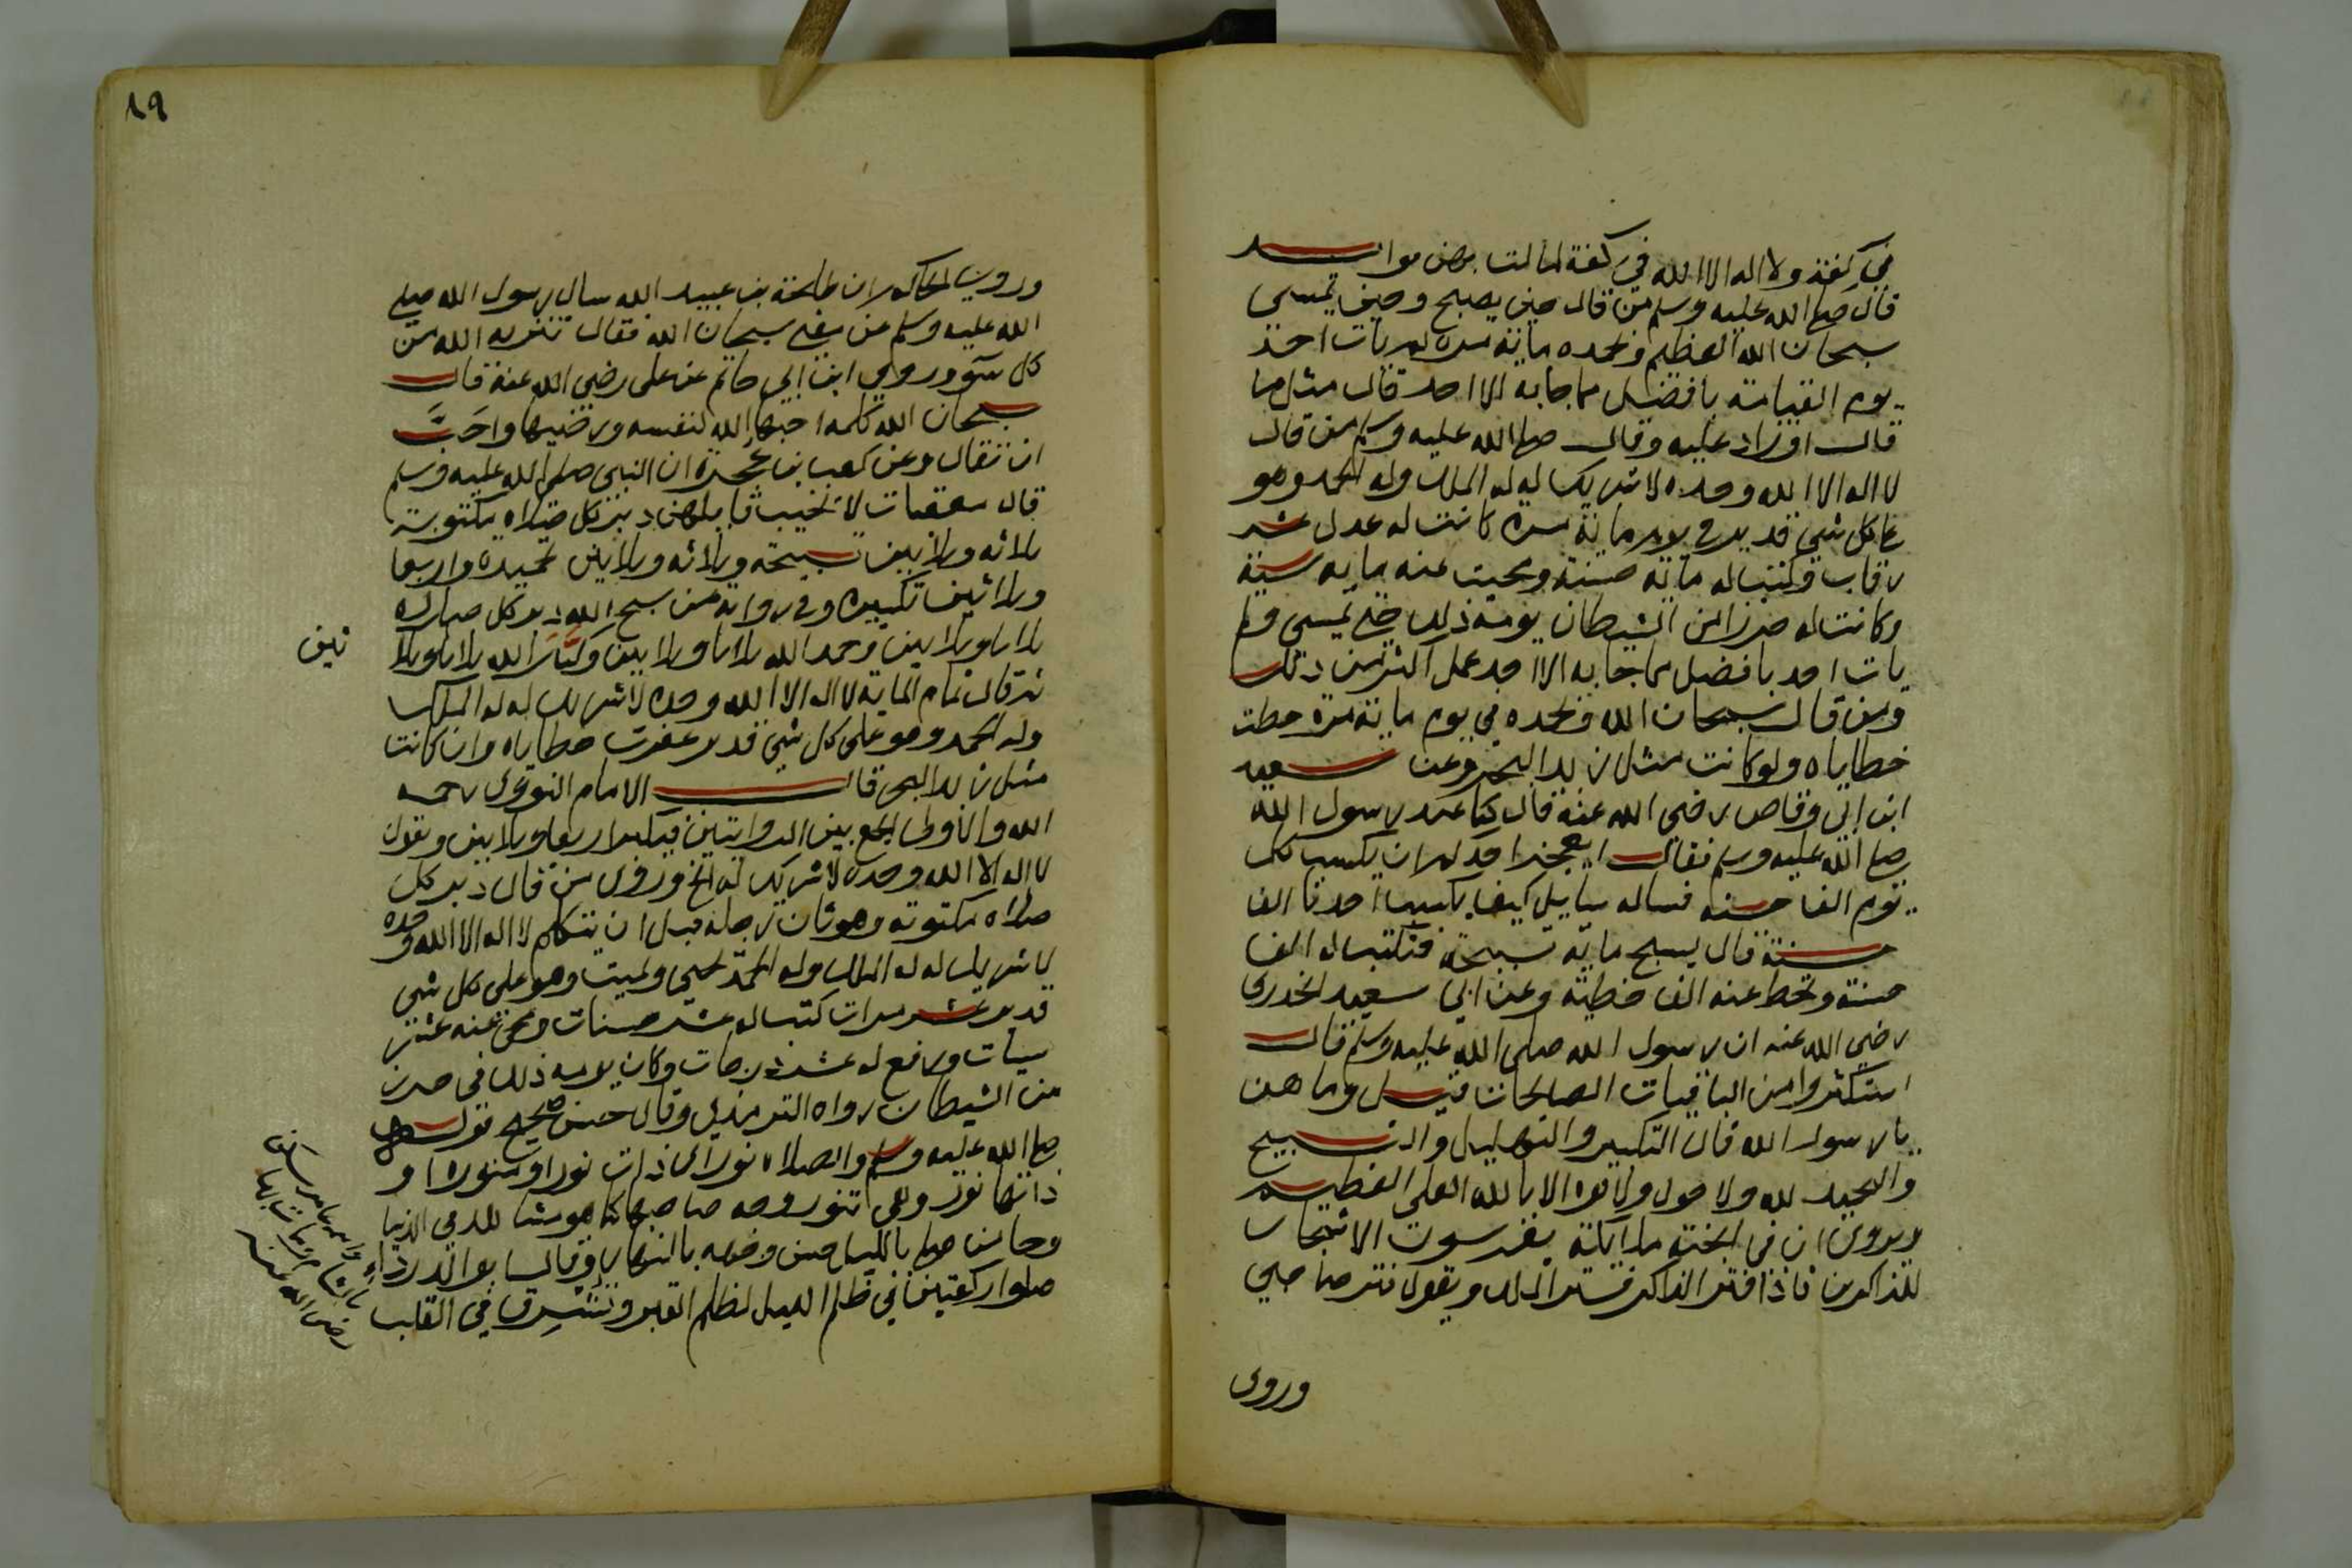 في كفة ولا اله الا الله في كفة لمالت بهن
قال صلى الله عليه وسلم من قال حين يصبح وحين يمسي
سبحان الله العظيم وبحمده ماية مرة لم يات احد
يوم القيامة بافضل مما جا به الا احد قال مثل ما
قال او زاد عليه وقال صلى الله عليه وسلم من قال
لا اله الا الله وحده لا شريك له له الملك وله الحمد وهو
على كل شي قدير في يوم ماية مرة كانت له عدل عشر
رقاب وكتب له ماية حسنة ومحيت عنه ماية سية
وكانت له حرزا من الشيطان يومه ذلك حتى يمسي ولم
يات احد بافضل مما جا به الا احد عمل اكثر من ذلك
ومن قال سبحان الله وبحمده في يوم ماية مرة حطت
خطاياه ولو كانت مثل زبد البحر وعن سعيد
ابن ابي وقاص رضي الله عنه قال كنا عند رسول الله
صلى الله عليه وسلم فقال ايعجز احدكم ان يكسب كل
يوم الف حسنه فساله سايل كيف يكسب احدنا الف
حسنة قال يسبح ماية تسبيحة فتكتب له الف
حسنة وتحط عنه الف خطية وعن ابي سعيد الخدري
رضي الله عنه ان رسول الله صلى الله عليه وسلم قال
استكثروا من الباقيات الصالحات قيل وما هن
يا رسول الله قال التكبير والتهليل والتسبيح
والحمد لله ولا حول ولا قوة الا بالله العلي العظيم
ويروى ان في الجنة ملايكة يغرسون الاشجار
للذاكرين فاذا فتر الذاكر فتر الملك ويقول فتر صاحبي
وروى
وروى الحاكم ان طلحة بن عبيد الله سال رسول الله صلى
الله عليه وسلم عن معنى سبحان الله فقال تنزيه الله من
كل سوء وروى ابن ابي حاتم عن علي رضي الله عنه قال
سبحان الله كلمة احبها الله لنفسه ورضيها واحب
ان تقال وعن كعب بن عجرة ان النبي صلى الله عليه وسلم
قال معقبات لا يخيب قايلهن دبر كل صلاة مكتوبة
ثلاثه وثلاثين تسبيحة وثلاثه وثلاثين تحميدة واربعا
وثلاثين تكبيرة وفي رواية من سبح الله دبر كل صلاة
ثلاثا وثلاثين وحمد الله ثلاثا وثلاثين وكبر الله ثلاثا وثلا
ثين
ثم قال تمام الماية لا اله الا الله وحده لا شريك له له الملك
وله الحمد وهو على كل شي قدير غفرت خطاياه وان كانت
مثل زبد البحر قال الامام النووي رحمه
الله والاولى الجمع بين الروايتين فيكبر اربعا وثلاثين ويقول
لا اله الا الله وحده لا شريك له الخ وروى من قال دبر كل
صلاة مكتوبة وهو ثان رجله قبل ان يتكلم لا اله الا الله وحده
لا شريك له له الملك وله الحمد يحيي ويميت وهو على كل شي
قدير عشر مرات كتب له عشر حسنات ومحي عنه عشر
سيات ورفع له عشر درجات وكان يومه ذلك في حرز
من الشيطان رواه الترمذي وقال حسن صحيح قوله
صلى الله عليه وسلم والصلاة نور اي ذات نور او منورة او
ذاتها نور وهي تنور وجه صاحبها كما هو مشاهد في الدنيا
وجا من صلى بالليل حسن وجهه بالنهار وقال ابو الدرداء
صلوا ركعتين في ظلم الليل لظلم القبر وتشرق في القلب
رضي الله عنه